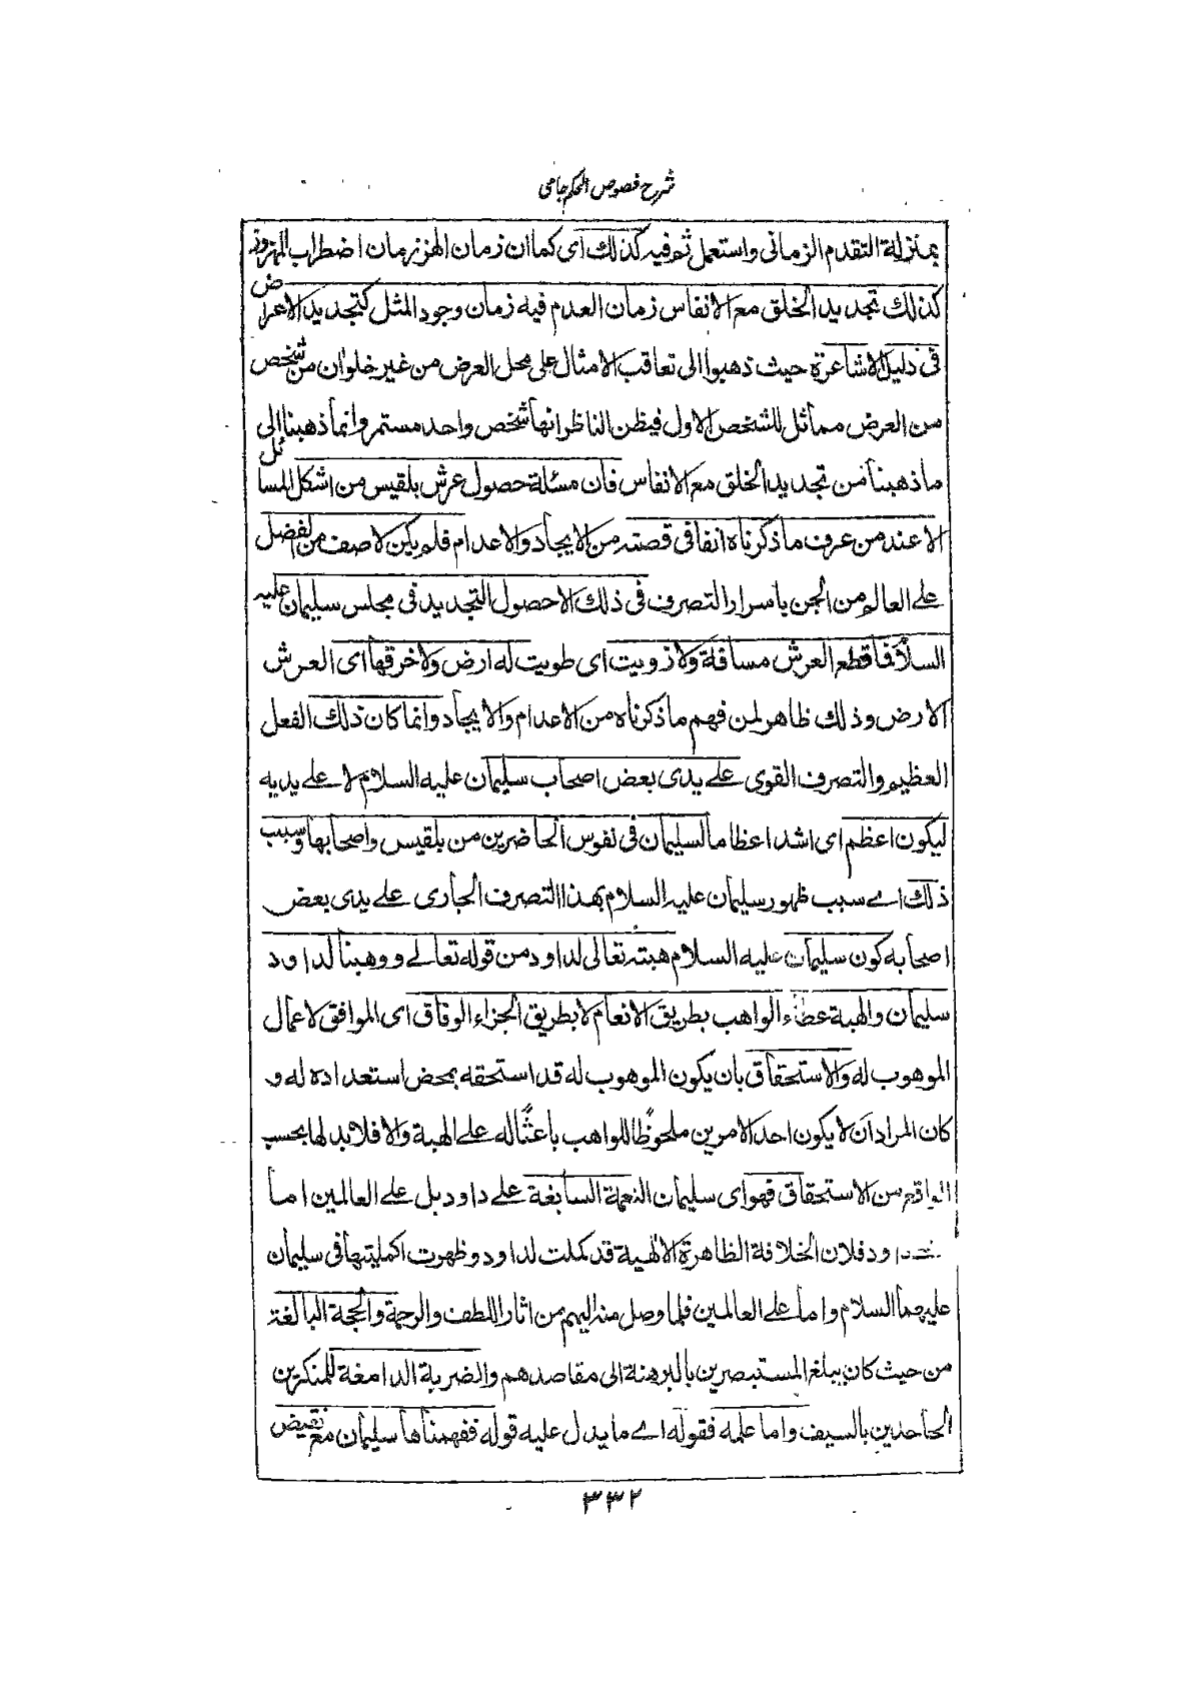 شرح فصوص الحکم جامی
بمنزلة التقدم الزمانی واستعمل ثم فیه کذلك ای کما ان زمان الهز زمان اضطراب المهزوز
کذلك تجدید الخلق مع الانفاس زمان العدم فیه زمان وجود المثل کتجدید الاعراض
فی دلیل الاشاعرة حیث ذهبوا الی تعاقب الامثال علی محل العرض من غیر خلو ان من شخص
من العرض مماثل للشخص الاول فیظن الناظر انها شخص واحد مستمر وانما ذهبنا الی
ما ذهبنا من تجدید الخلق مع الانفاس فان مسئلة حصول عرش بلقیس من اشکل المسائل
الا عند من عرف ما ذکرناه انفا فی قصته من الایجاد والاعدام فلم یکن لاصف من الفضل
علے العالم من الجن باسرار التصرف فی ذلك الا حصول التجدید فی مجلس سلیمان علیه
السلام فما قطع العرش مسافة ولا زویت ای طویت له ارض ولا خرقها ای العرش
الارض وذلك ظاهر لمن فهم ما ذکرناه من الاعدام والایجاد وانما کان ذلك الفعل
العظیم والتصرف القوی علے یدی بعض اصحاب سلیمان علیه السلام لا علے یدیه
لیکون اعظم ای اشد اعظاما لسلیمان فی نفوس الحاضرین من بلقیس واصحابها وسبب
ذلك اے سبب ظهور سلیمان علیه السلام بهذا التصرف الجاری علے یدی بعض
اصحابه کون سلیمان علیه السلام هبته تعالی لداود من قوله تعالے ووهبنا لداود
سلیمان والهبة عطاء الواهب بطریق الانعام لا بطریق الجزاء الوفاق ای الموافق لاعمال
الموهوب له والاستحقاق بان یکون الموهوب له قد استحقه بمحض استعداده له و
کان المراد ان لا یکون احد الامرین ملحوظًا للواهب باعثًا له علے الهبة والا فلا بد لها بحسب
الواقع من الاستحقاق فهو ای سلیمان النعمة السابغة علے داود بل علے العالمین اما
داود فلان الخلافة الظاهرة الالٰهیة قد کملت لداود وظهرت اکملیتها فی سلیمان
علیهما السلام واما علے العالمین فلما وصل منه الیهم من اثار اللطف والرحمة والحجة البالغة
من حیث کان یبلغ المستبصرین بالبرهنة الی مقاصدهم والضربة الدامغة للمنکرین
الجاحدین بالسیف واما علمه فقوله اے ما یدل علیه قوله ففهمناها سلیمان مع نقیض
۳۳۲